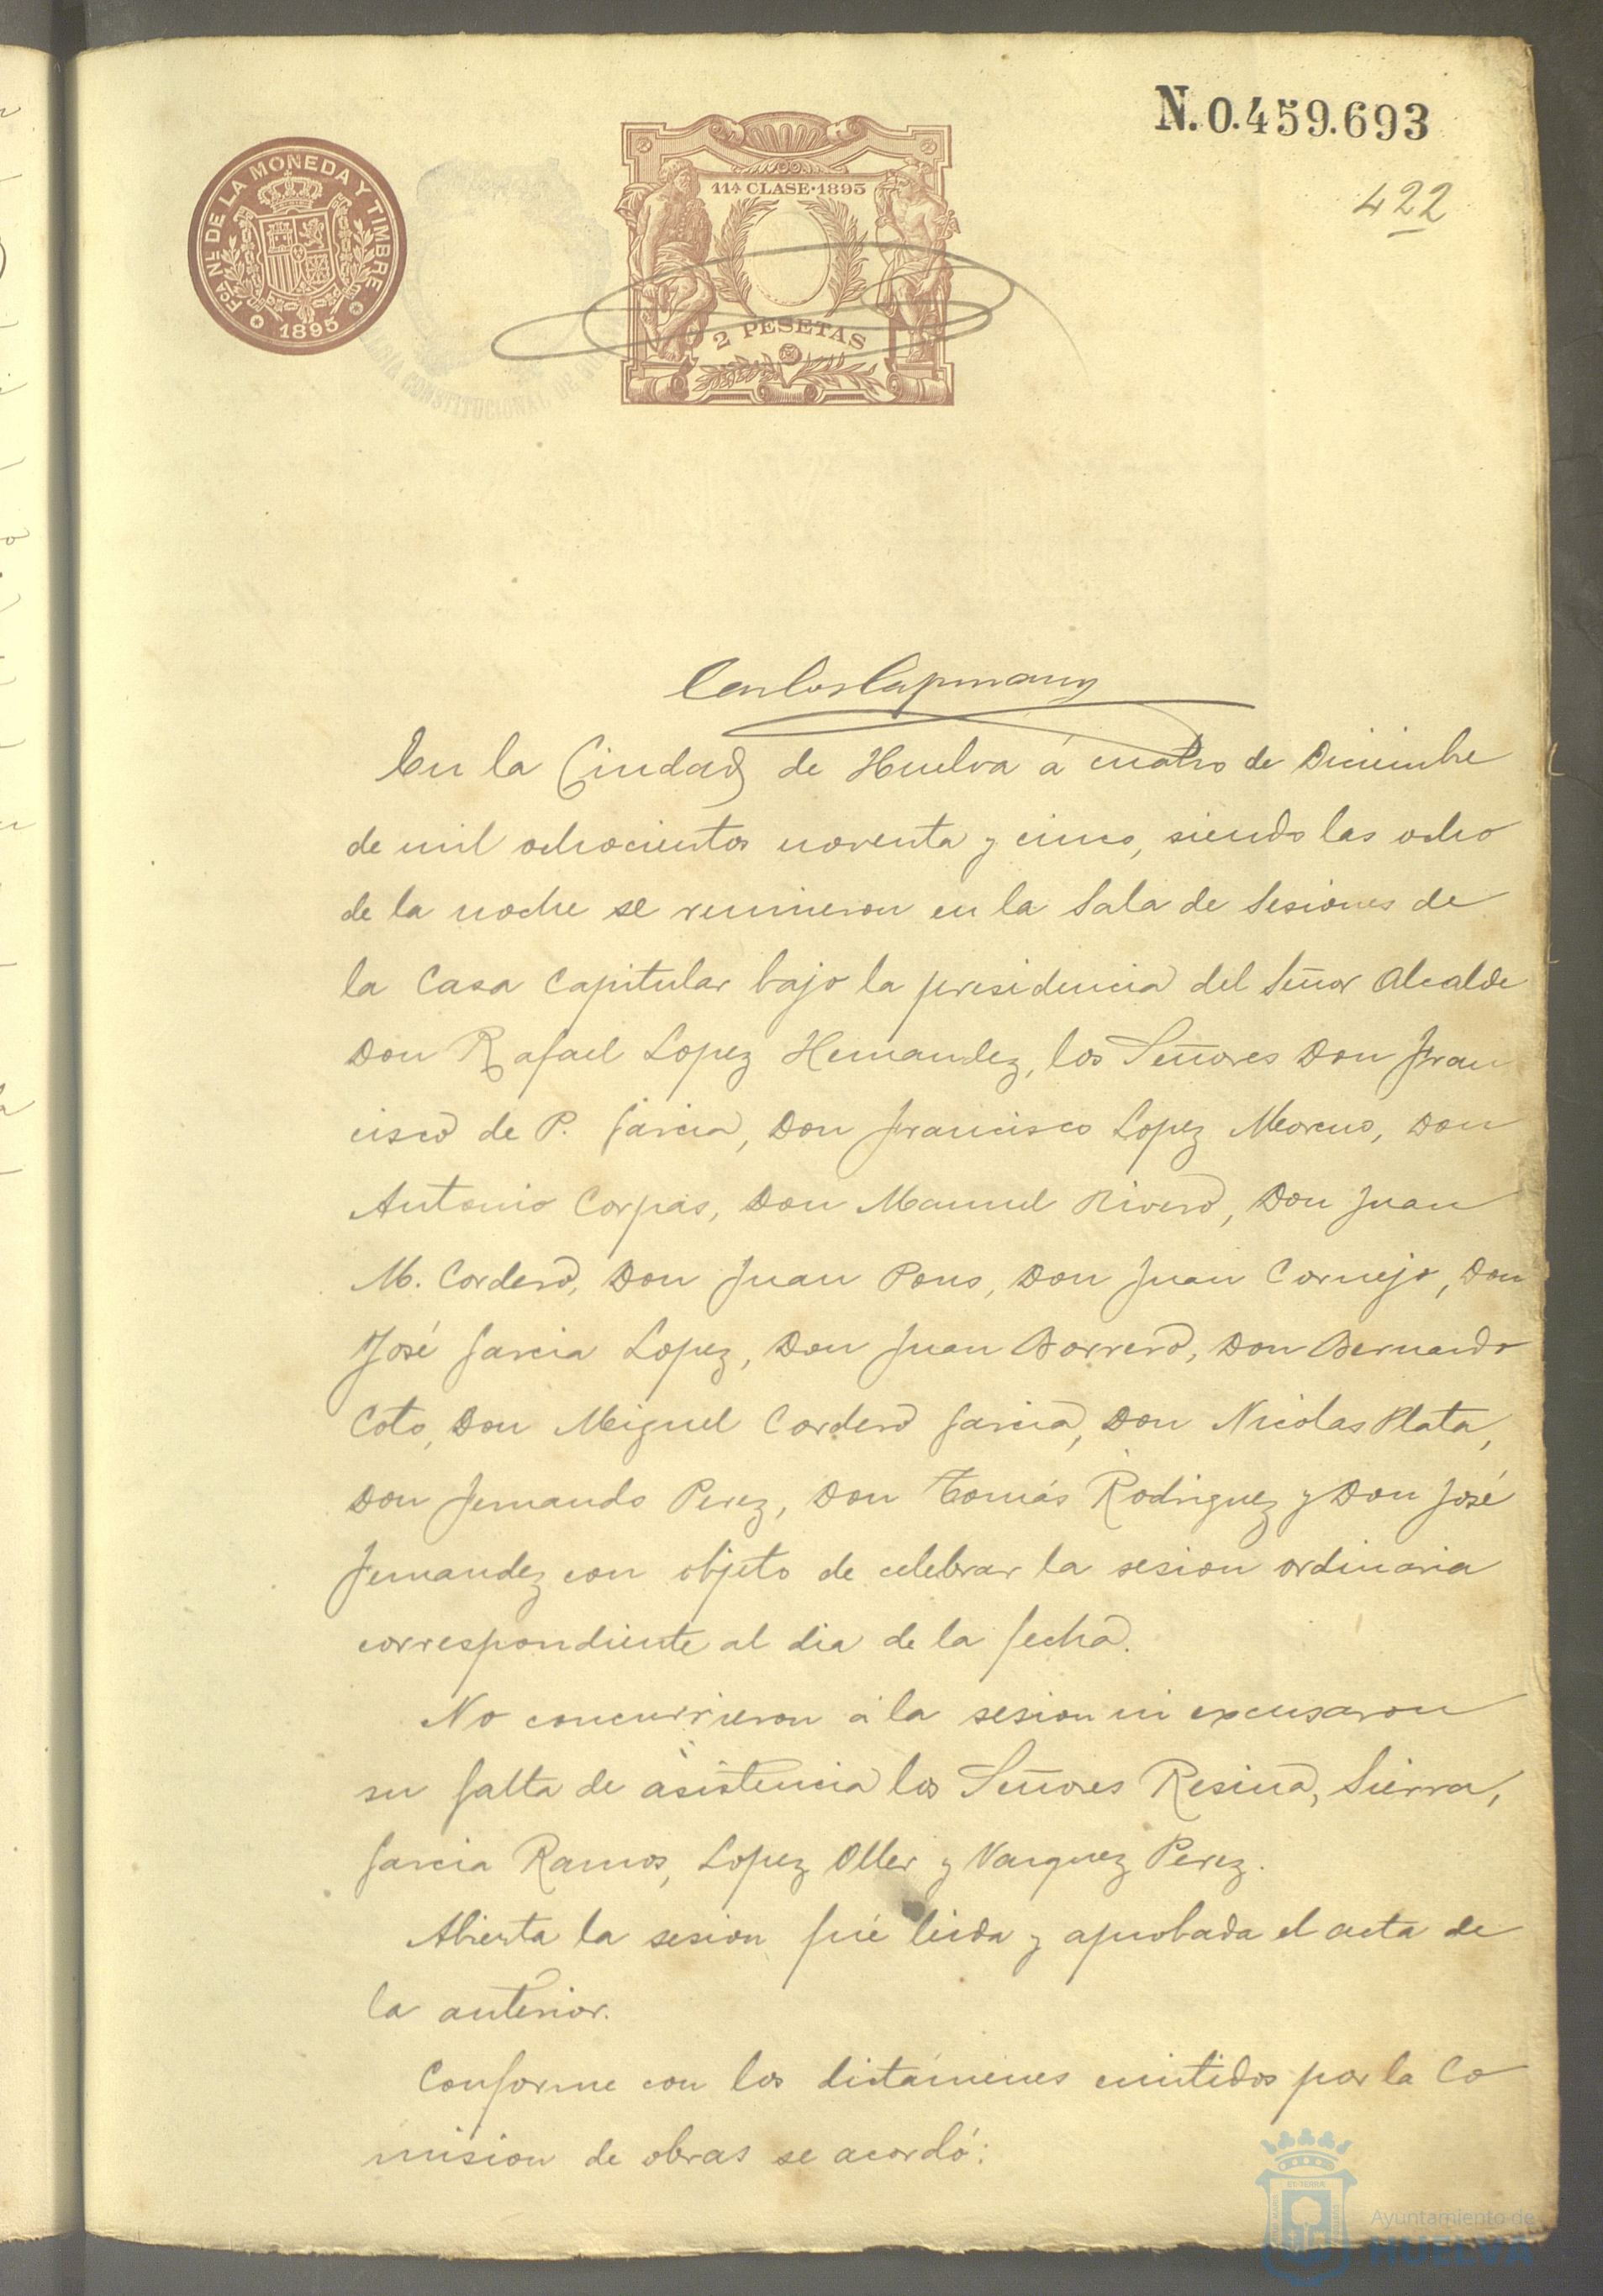 N.0.459.693
422
FCA NL DE LA MONEDA Y TIMBRE
1895
11ª CLASE·1895
2 PESETAS
CONSTITUCIONAL DE
Carlos Capmany
En la Ciudad de Huelva á cuatro de Diciembre
de mil ochocientos noventa y cinco, siendo las ocho
de la noche se reunieron en la Sala de Sesiones de
la Casa Capitular bajo la presidencia del Señor Alcalde
Don Rafael Lopez Hernandez, los Señores Don Fran
cisco de P. Garcia, Don Francisco Lopez Moreno, Don
Antonio Corpas, Don Manuel Rivero, Don Juan
M. Cordero, Don Juan Pons, Don Juan Cornejo, Don
José Garcia Lopez, Don Juan Borrero, Don Bernardo
Coto, Don Miguel Cordero Garcia, Don Nicolas Plata,
Don Fernando Perez, Don Tomás Rodriguez y Don José
Fernandez con objeto de celebrar la sesion ordinaria
correspondiente al dia de la fecha.
No concurrieron á la sesion ni excusaron
su falta de asistencia los Señores Resina, Sierra,
Garcia Ramos, Lopez Oller y Vazquez Perez.
Abierta la sesion fué leida y aprobada el acta de
la anterior.
Conforme con los dictámenes emitidos por la Co
mision de obras se acordó:
Ayuntamiento de
HUELVA